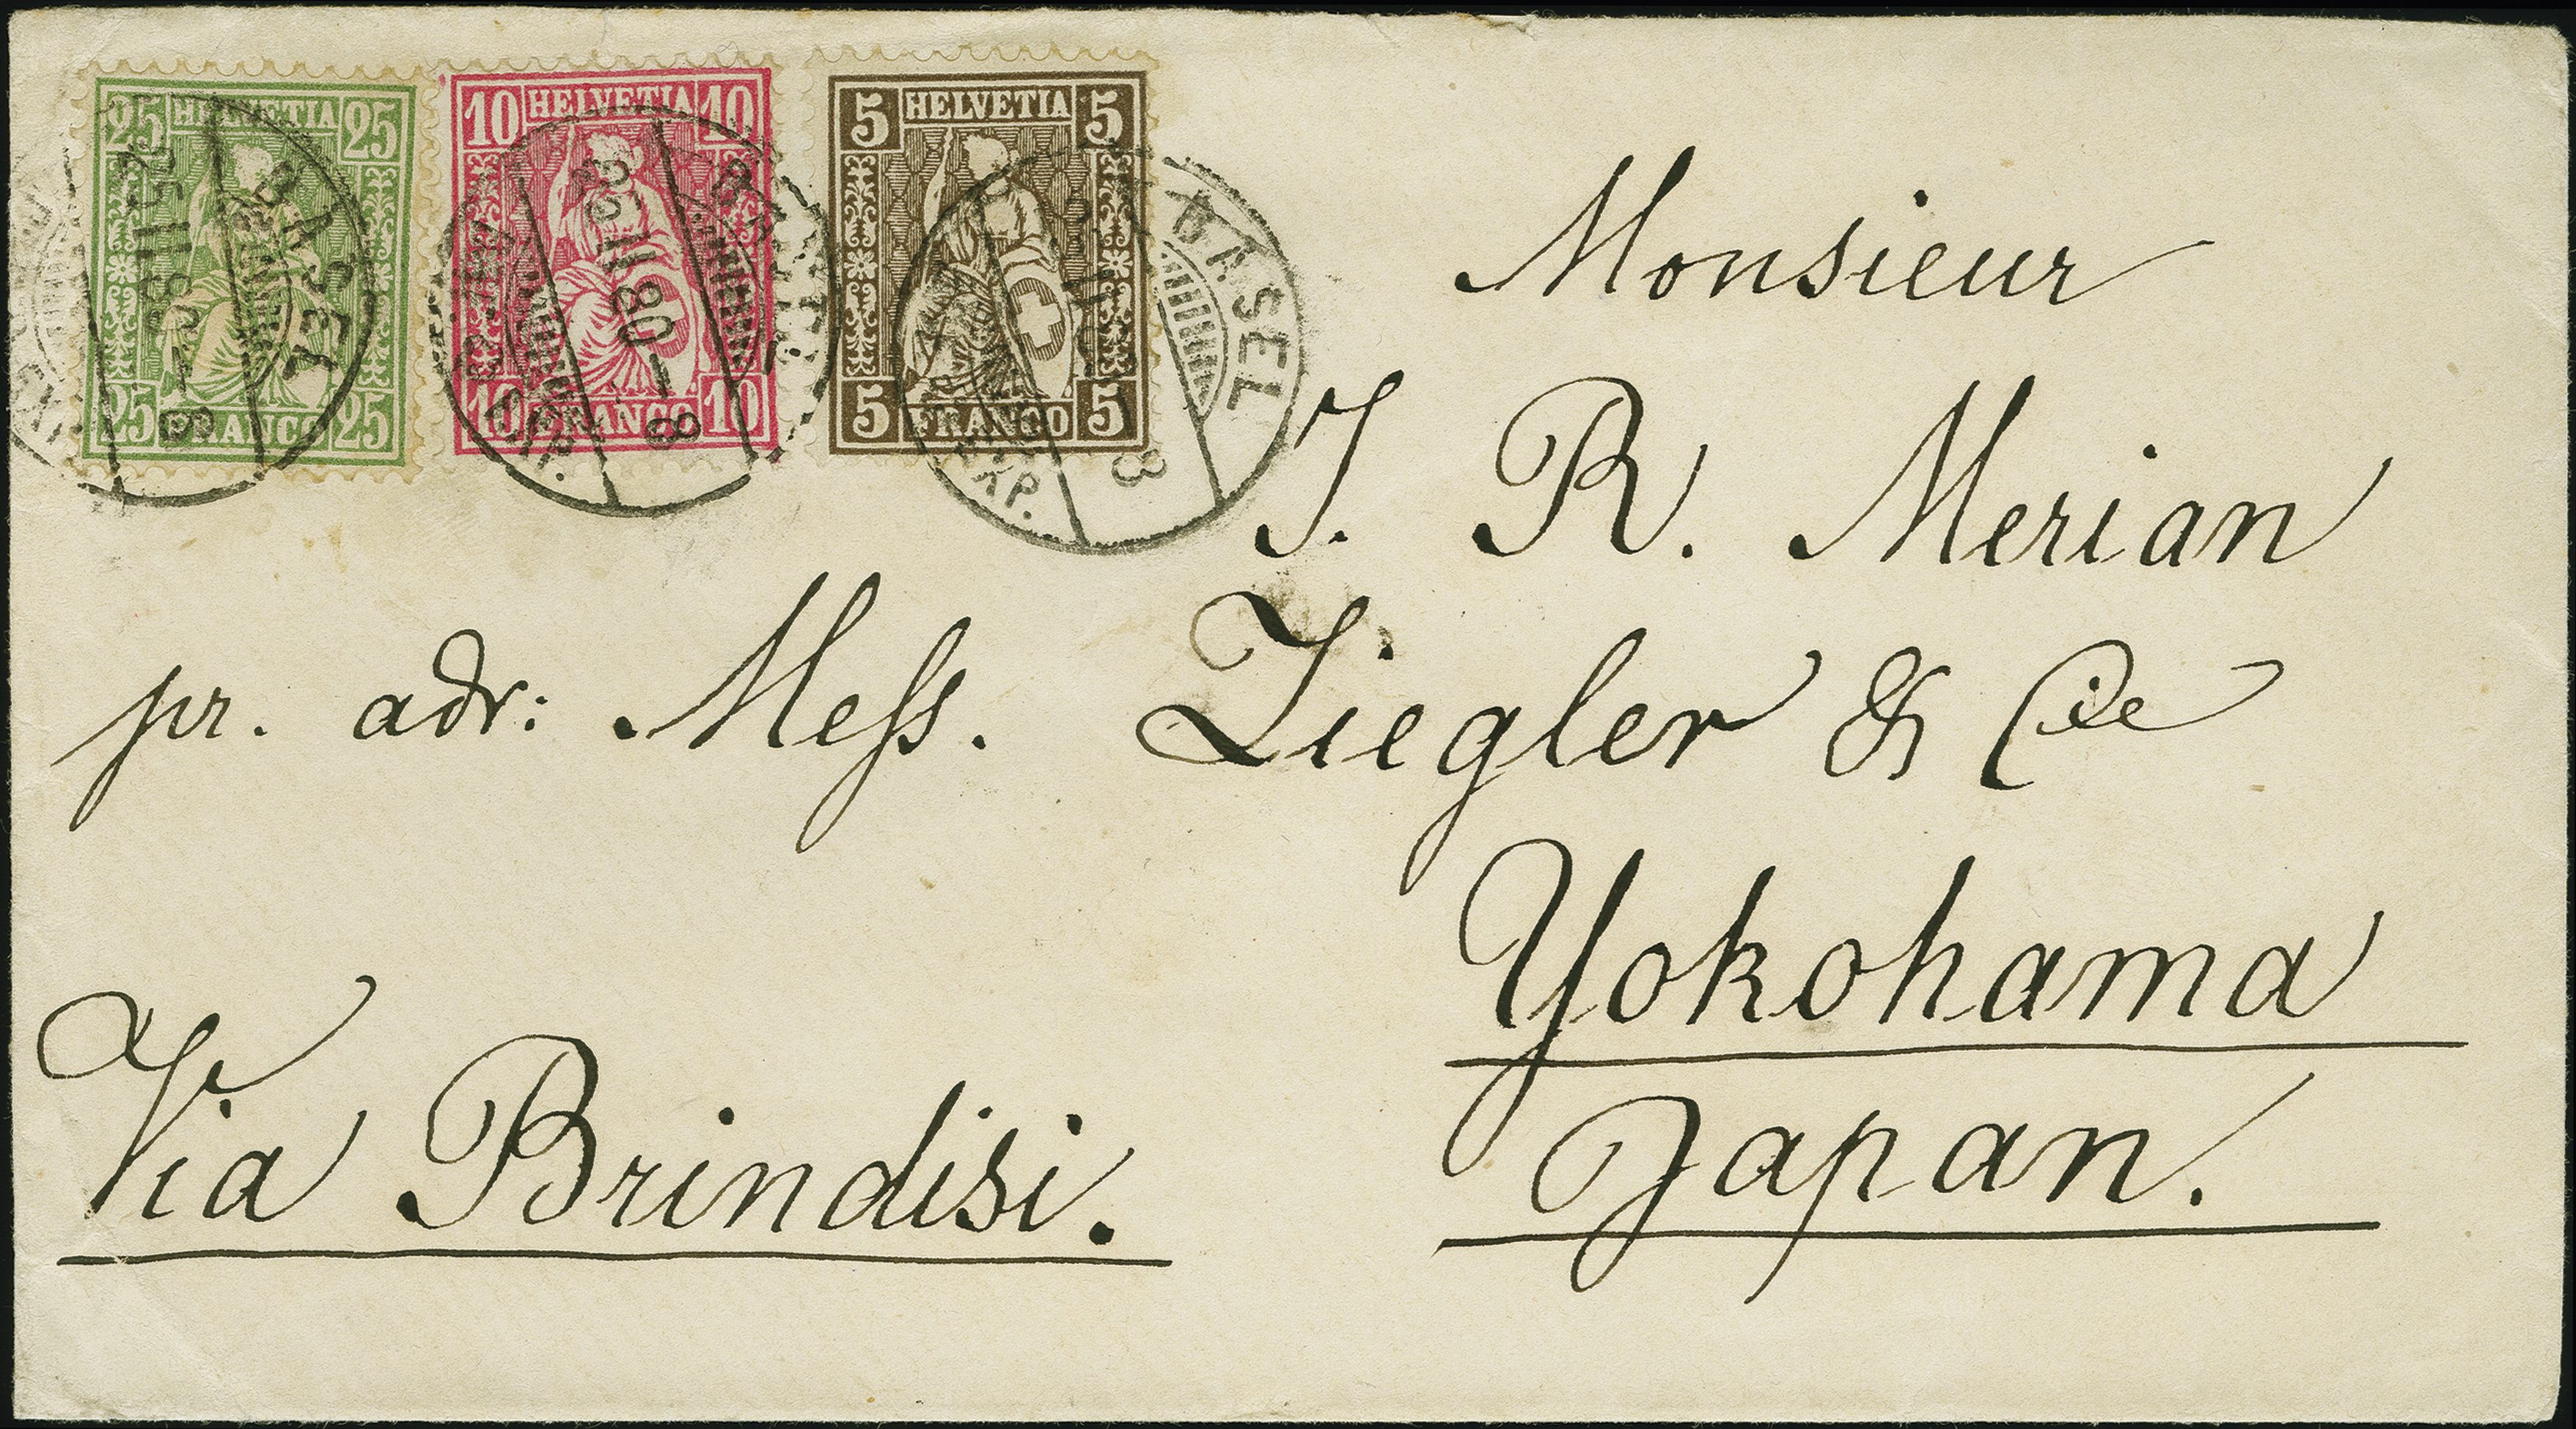 25 HELVETIA 25
25 FRANCO 25
10 HELVETIA 10
10 FRANCO 10
5 HELVETIA 5
5 FRANCO 5
BASEL
25 II 80 – 8
BASEL
EXP.
Monsieur
J. R. Merian
pr. adr: Meſs. Ziegler & Cie
Yokohama
Japan.
Via Brindisi.